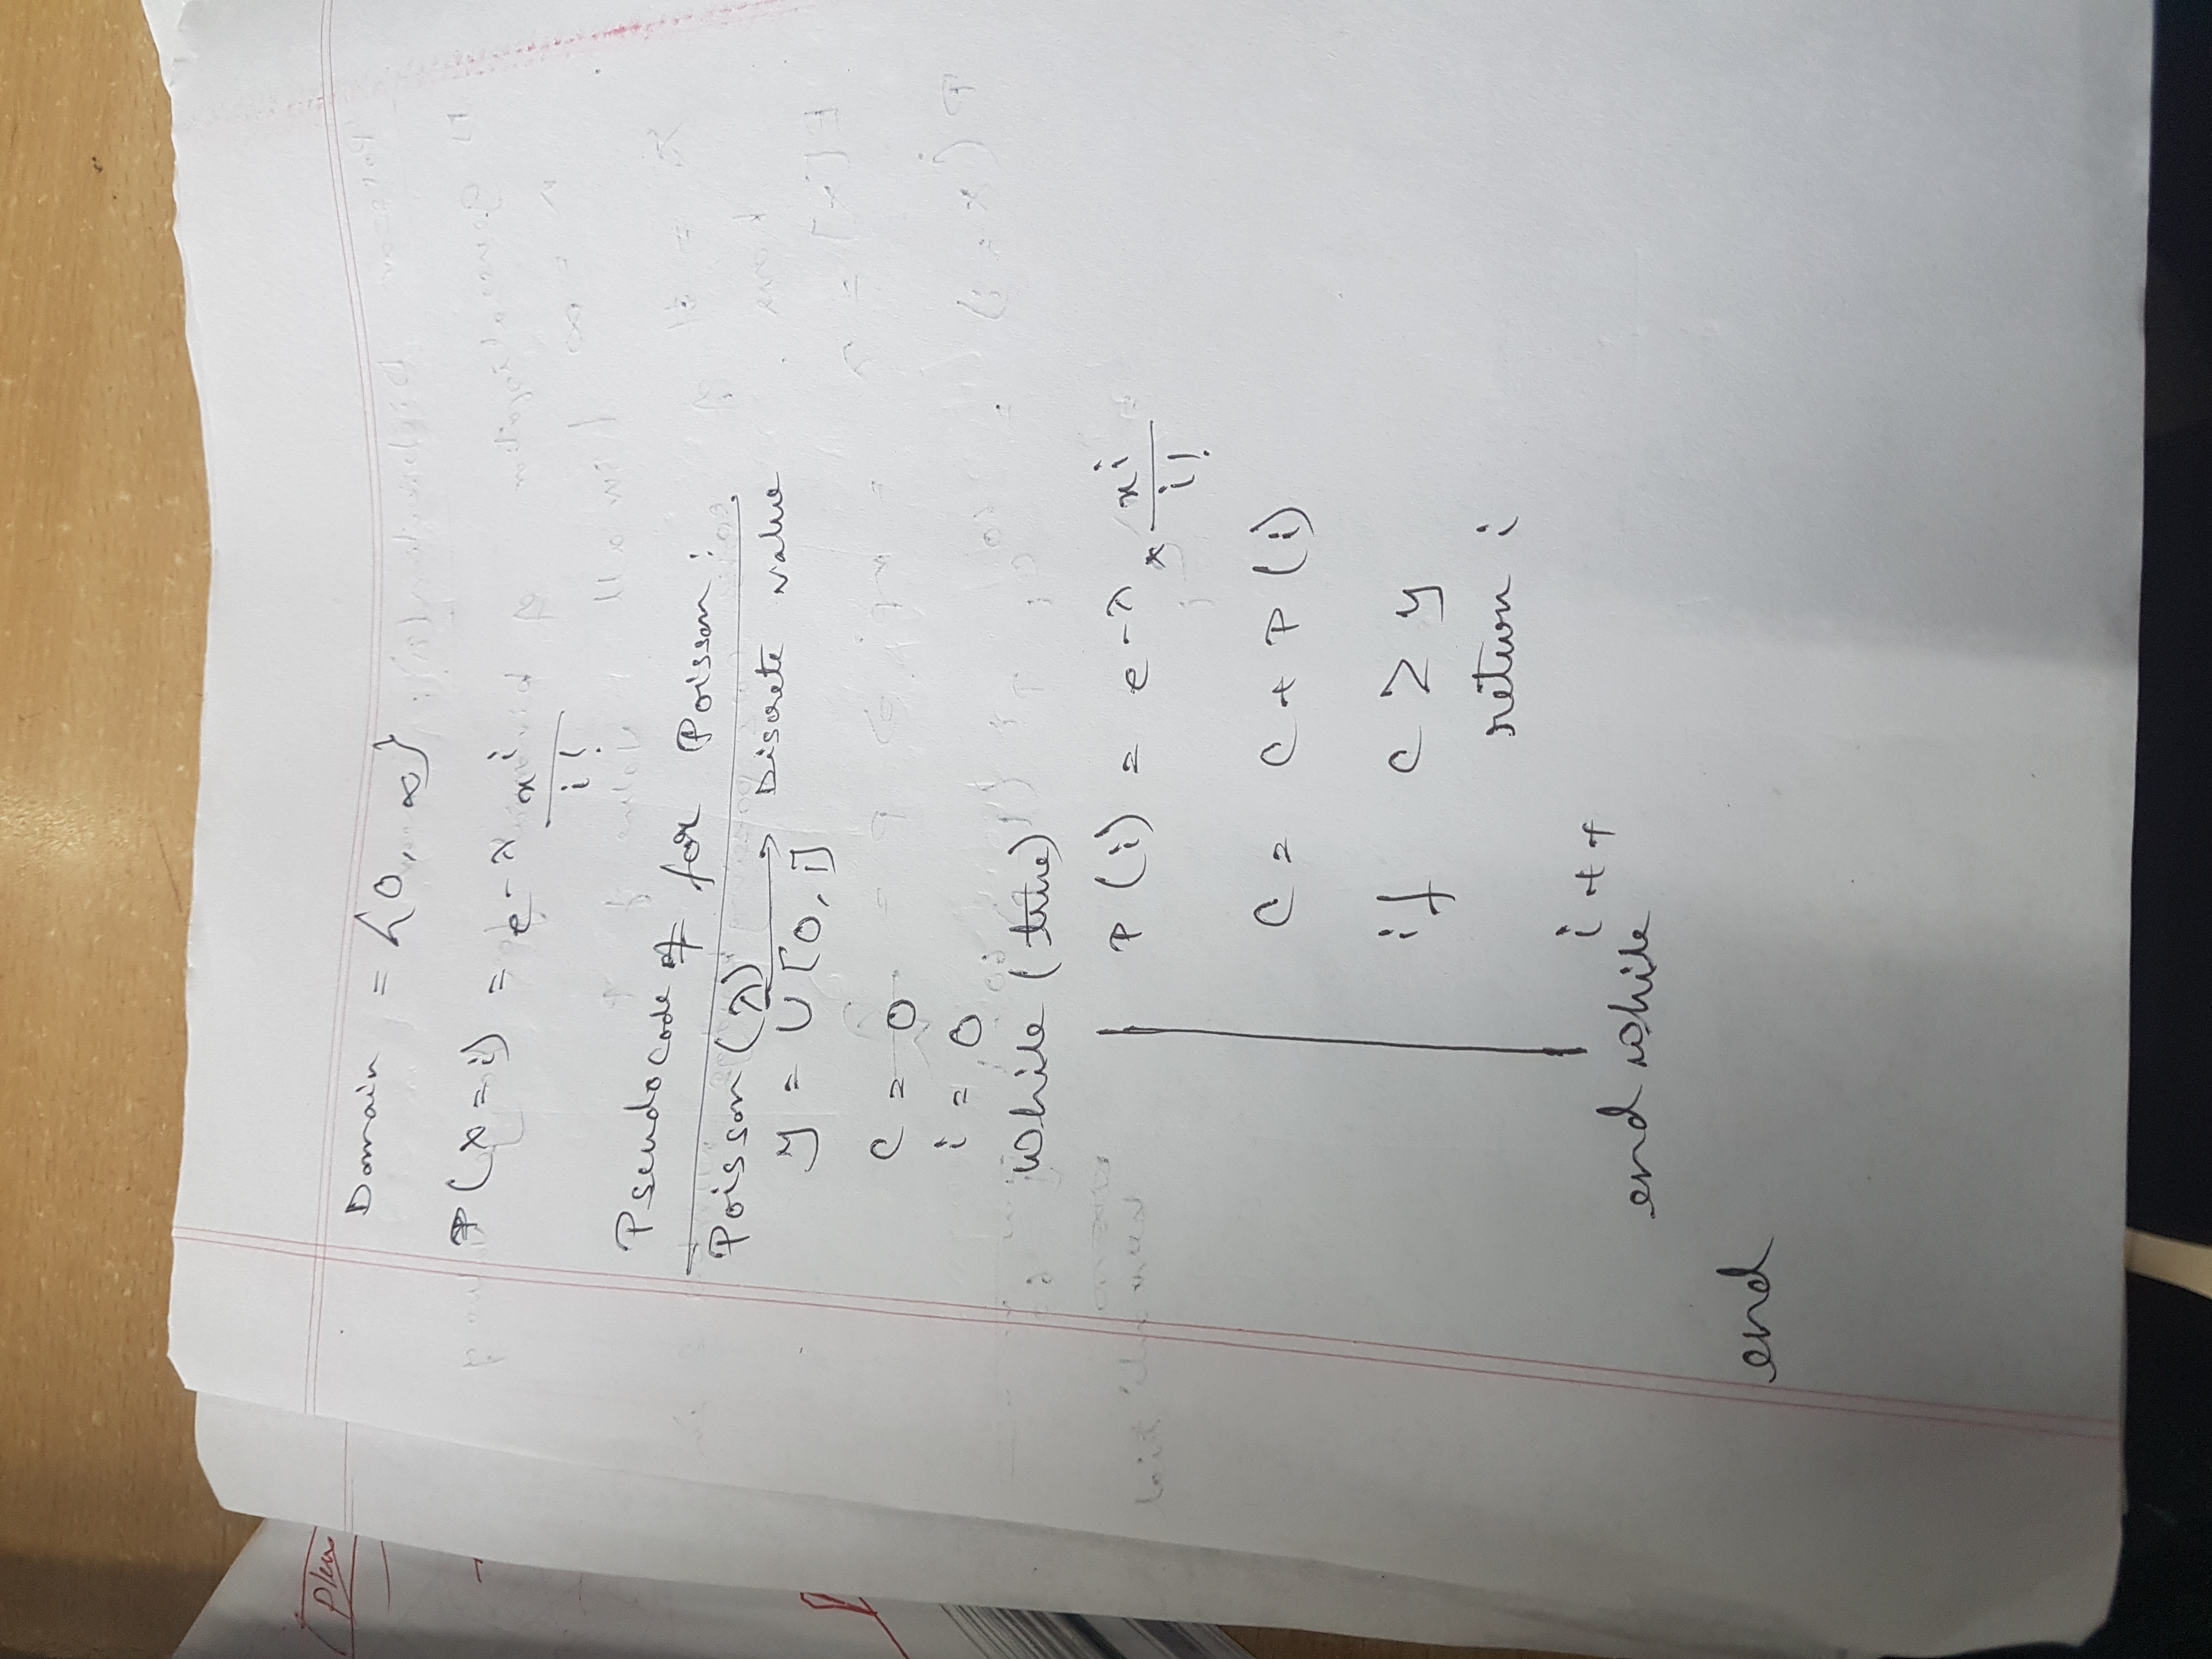 Domain = {0, ∞}
P(x=i) = e^-λ x^i / i!
Pseudocode of for Poisson:
Poisson (λ) → Discrete value
y = U[0,1]
C = 0
i = 0
While (true)
P(i) = e^-λ * x^i / i!
C = C + P(i)
if C ≥ y
return i
i++
end while
end